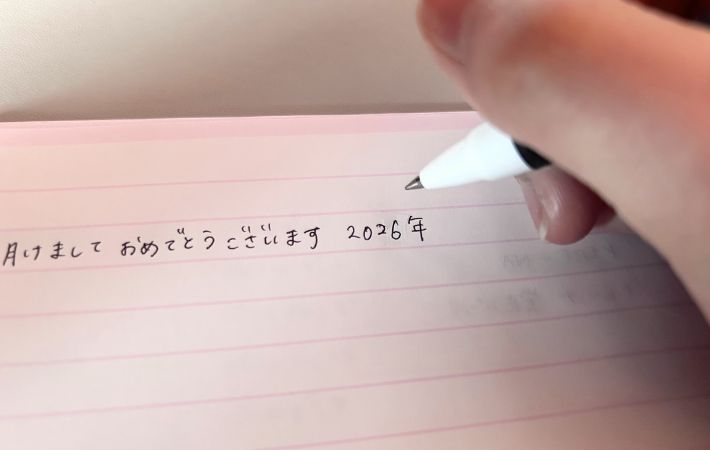 月けまして おめでとうございます 2026年